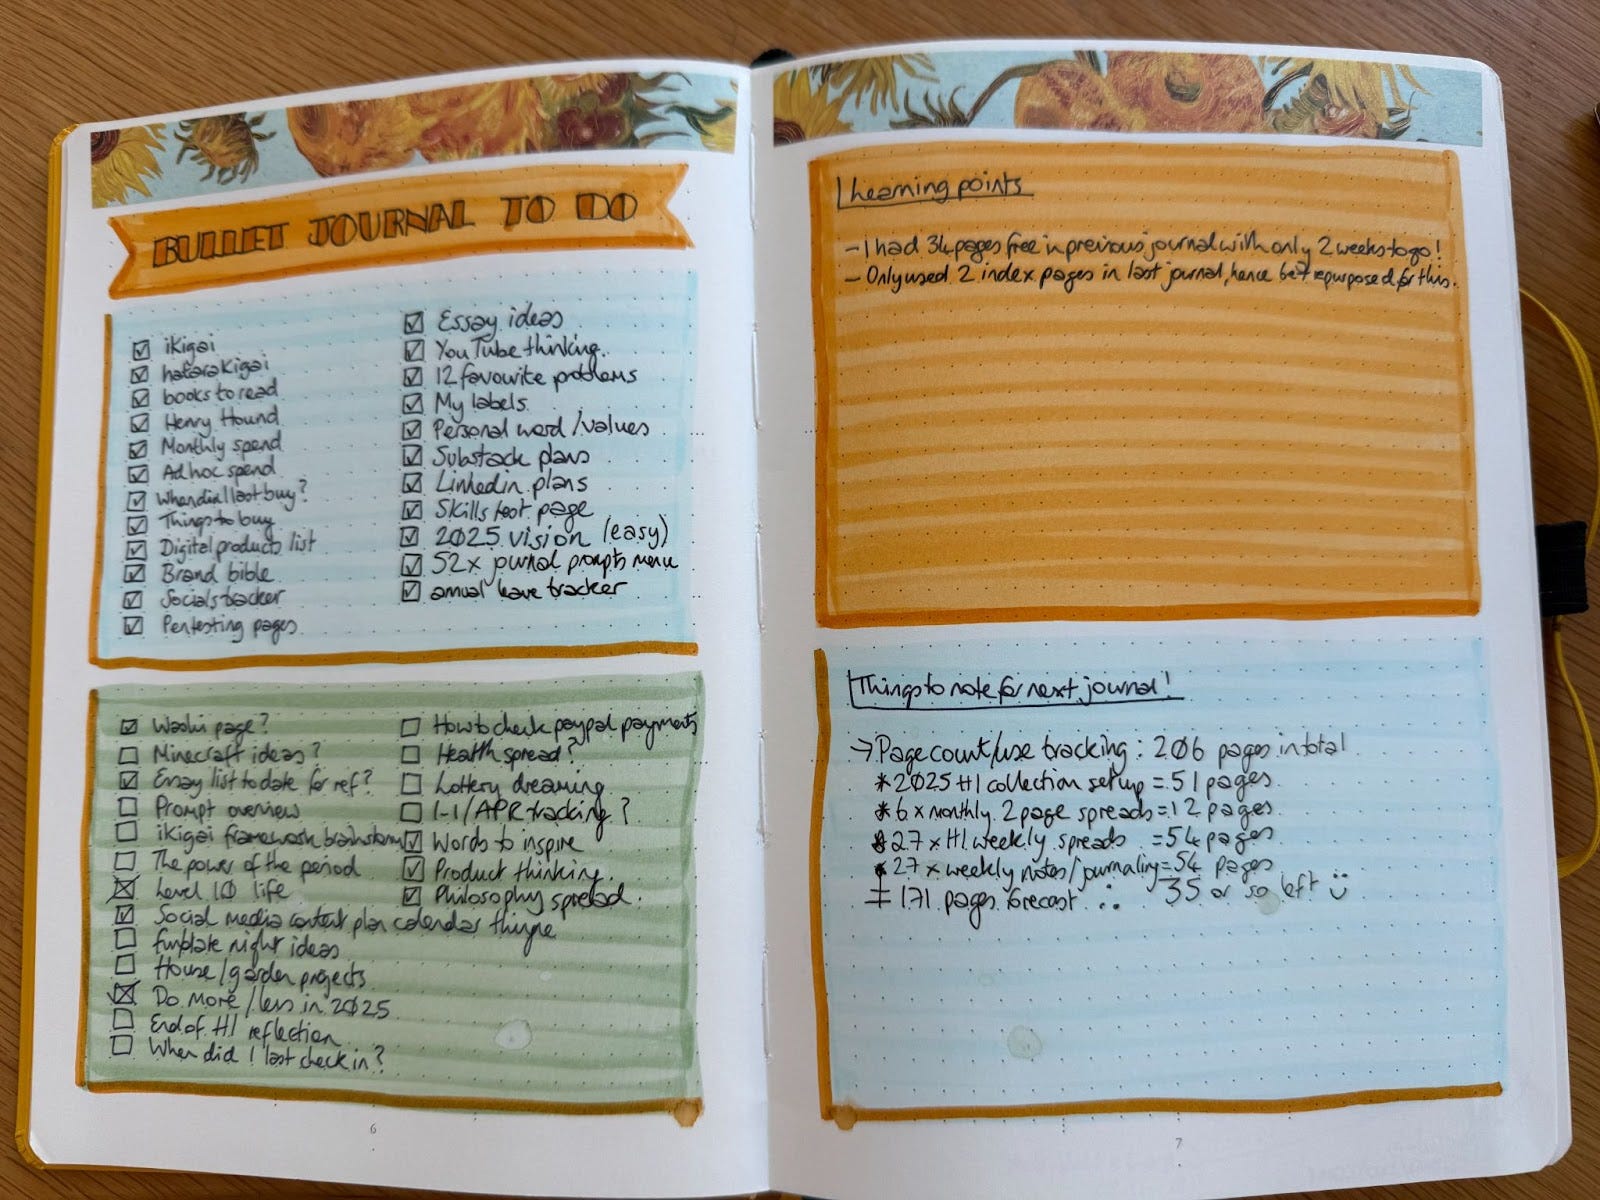 BULLET JOURNAL TO DO
☑ ikigai
☑ hatarakigai
☑ books to read
☑ Henry Hound
☑ Monthly spend
☑ Ad hoc spend
☑ When did I last buy?
☑ Things to buy
☑ Digital products list
☑ Brand bible
☑ Socials tracker
☑ Pen testing pages
☑ Essay ideas
☑ YouTube thinking
☑ 12 favourite problems
☑ My labels
☑ Personal word/values
☑ Substack plans
☑ Linkedin plans
☑ Skills test page
☑ 2025 vision (easy)
☑ 52x journal prompts menu
☑ annual leave tracker
☑ Washi page?
☐ Minecraft ideas?
☑ Essay list to date for ref?
☐ Prompt overview
☐ ikigai framework brainstorm
☐ The power of the period
☒ Level 10 life
☑ Social media content plan calendar thingie
☐ night ideas
☐ House/garden projects
☒ Do More/less in 2025
☐ End of H1 reflection
☐ When did I last check in?
☐ How to check paypal payments
☐ Health spread?
☐ Lottery dreaming
☐ 1-1/APR tracking?
☑ Words to inspire
☑ Product thinking
☑ Philosophy spread.
6
Learning points
- I had 34 pages free in previous journal with only 2 weeks to go!
- Only used 2 index pages in last journal, hence repurposed for this.
Things to note for next journal!
→ Page count/use tracking: 206 pages in total
* 2025 H1 collection set up = 51 pages
* 6 x monthly 2 page spreads = 12 pages
* 27 x H1 weekly spreads = 54 pages
* 27 x weekly notes/journaling = 54 pages
= 171 pages forecast ∴ 35 or so left :)
7